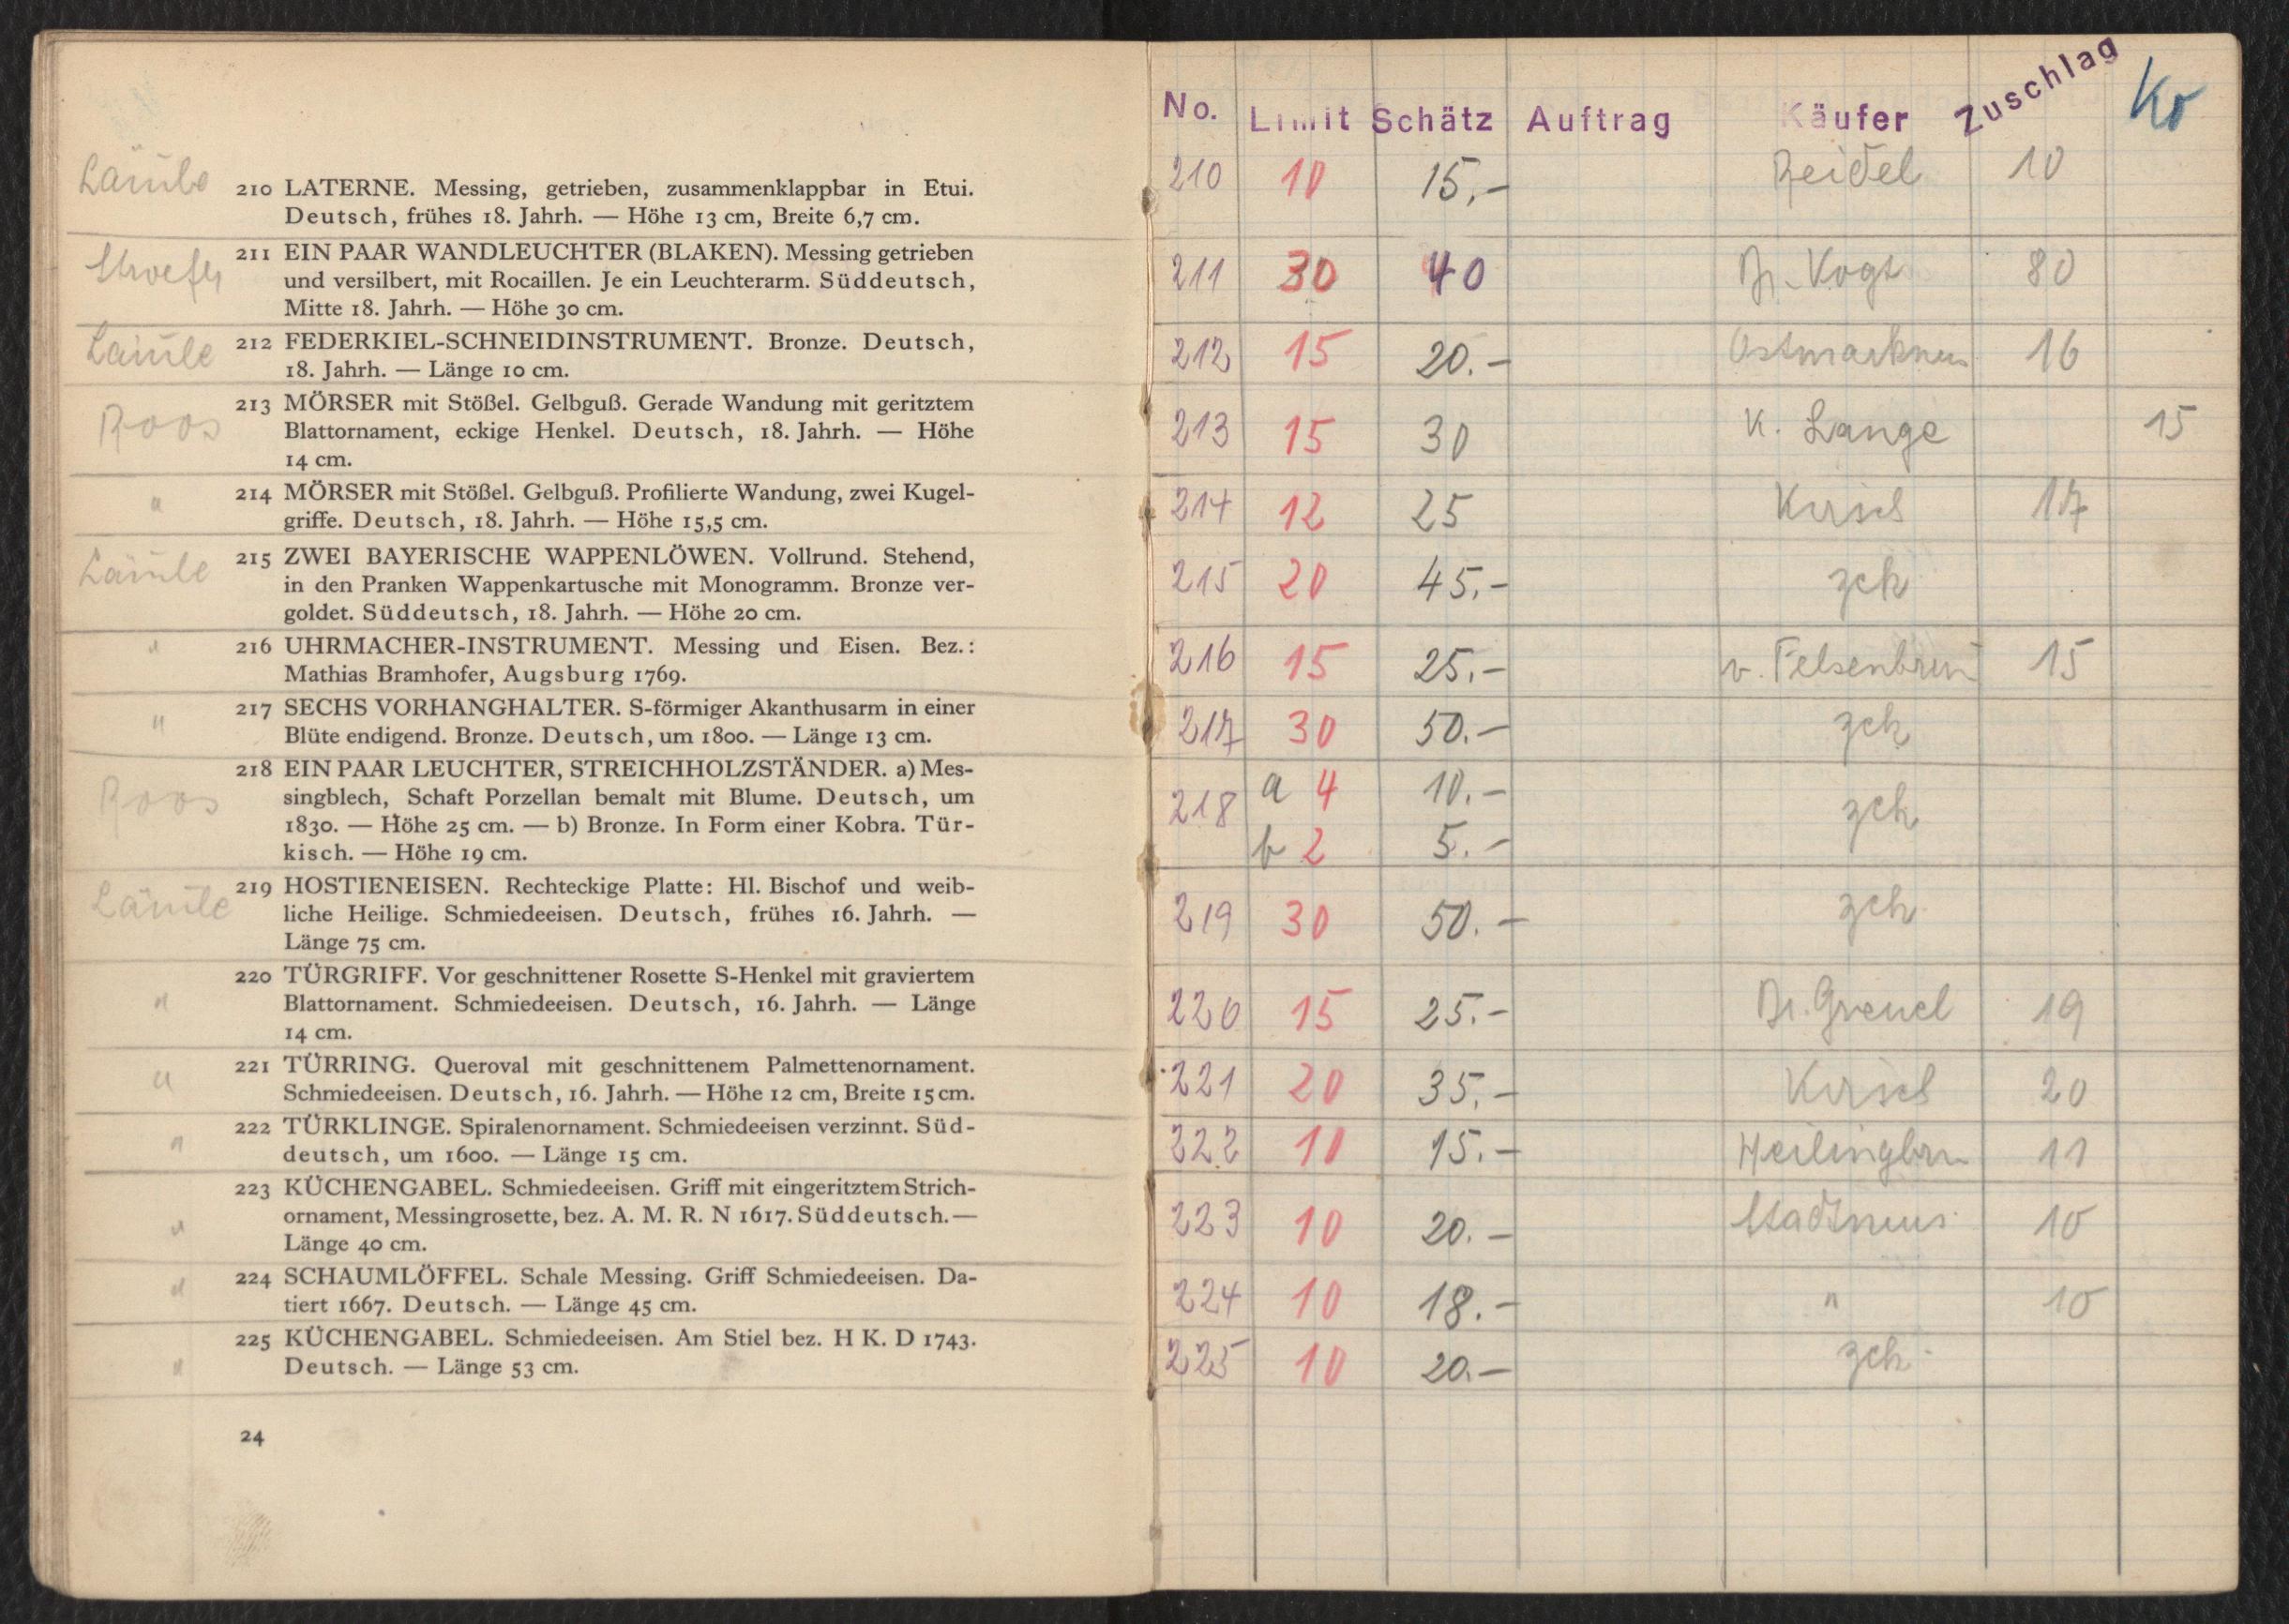 Läule
210 LATERNE. Messing, getrieben, zusammenklappbar in Etui.
Deutsch, frühes 18. Jahrh. — Höhe 13 cm, Breite 6,7 cm.
211 EIN PAAR WANDLEUCHTER (BLAKEN). Messing getrieben
und versilbert, mit Rocaillen. Je ein Leuchterarm. Süddeutsch,
Mitte 18. Jahrh. — Höhe 30 cm.
Läule
212 FEDERKIEL-SCHNEIDINSTRUMENT. Bronze. Deutsch,
18. Jahrh. — Länge 10 cm.
Roos
213 MÖRSER mit Stößel. Gelbguß. Gerade Wandung mit geritztem
Blattornament, eckige Henkel. Deutsch, 18. Jahrh. — Höhe
14 cm.
"
214 MÖRSER mit Stößel. Gelbguß. Profilierte Wandung, zwei Kugel-
griffe. Deutsch, 18. Jahrh. — Höhe 15,5 cm.
Läule
215 ZWEI BAYERISCHE WAPPENLÖWEN. Vollrund. Stehend,
in den Pranken Wappenkartusche mit Monogramm. Bronze ver-
goldet. Süddeutsch, 18. Jahrh. — Höhe 20 cm.
"
216 UHRMACHER-INSTRUMENT. Messing und Eisen. Bez.:
Mathias Bramhofer, Augsburg 1769.
"
217 SECHS VORHANGHALTER. S-förmiger Akanthusarm in einer
Blüte endigend. Bronze. Deutsch, um 1800. — Länge 13 cm.
Roos
218 EIN PAAR LEUCHTER, STREICHHOLZSTÄNDER. a) Mes-
singblech, Schaft Porzellan bemalt mit Blume. Deutsch, um
1830. — Höhe 25 cm. — b) Bronze. In Form einer Kobra. Tür-
kisch. — Höhe 19 cm.
Läule
219 HOSTIENEISEN. Rechteckige Platte: Hl. Bischof und weib-
liche Heilige. Schmiedeeisen. Deutsch, frühes 16. Jahrh. —
Länge 75 cm.
"
220 TÜRGRIFF. Vor geschnittener Rosette S-Henkel mit graviertem
Blattornament. Schmiedeeisen. Deutsch, 16. Jahrh. — Länge
14 cm.
"
221 TÜRRING. Queroval mit geschnittenem Palmettenornament.
Schmiedeeisen. Deutsch, 16. Jahrh. — Höhe 12 cm, Breite 15 cm.
"
222 TÜRKLINGE. Spiralenornament. Schmiedeeisen verzinnt. Süd-
deutsch, um 1600. — Länge 15 cm.
"
223 KÜCHENGABEL. Schmiedeeisen. Griff mit eingeritztem Strich-
ornament, Messingrosette, bez. A. M. R. N 1617. Süddeutsch. —
Länge 40 cm.
"
224 SCHAUMLÖFFEL. Schale Messing. Griff Schmiedeeisen. Da-
tiert 1667. Deutsch. — Länge 45 cm.
"
225 KÜCHENGABEL. Schmiedeeisen. Am Stiel bez. H K. D 1743.
Deutsch. — Länge 53 cm.
24
No. Limit Schätz Auftrag Käufer Zuschlag Ko
210 10 15.- Reidel 10
211 30 40 Dr. Vogt 80
212 15 20.- 16
213 15 30 K. Lange 15
214 12 25 Kirsch 17
215 20 45.- zck
216 15 25.- v. Felsenbrun 15
217 30 50.- zck
218 a 4 10.- zck
b 2 5.-
219 30 50.- zck
220 15 25.- Dr. Greuel 19
221 20 35.- Kirsch 20
222 10 15.- 11
223 10 20.- Stadtmus. 10
224 10 18.- " 10
225 10 20.- zck